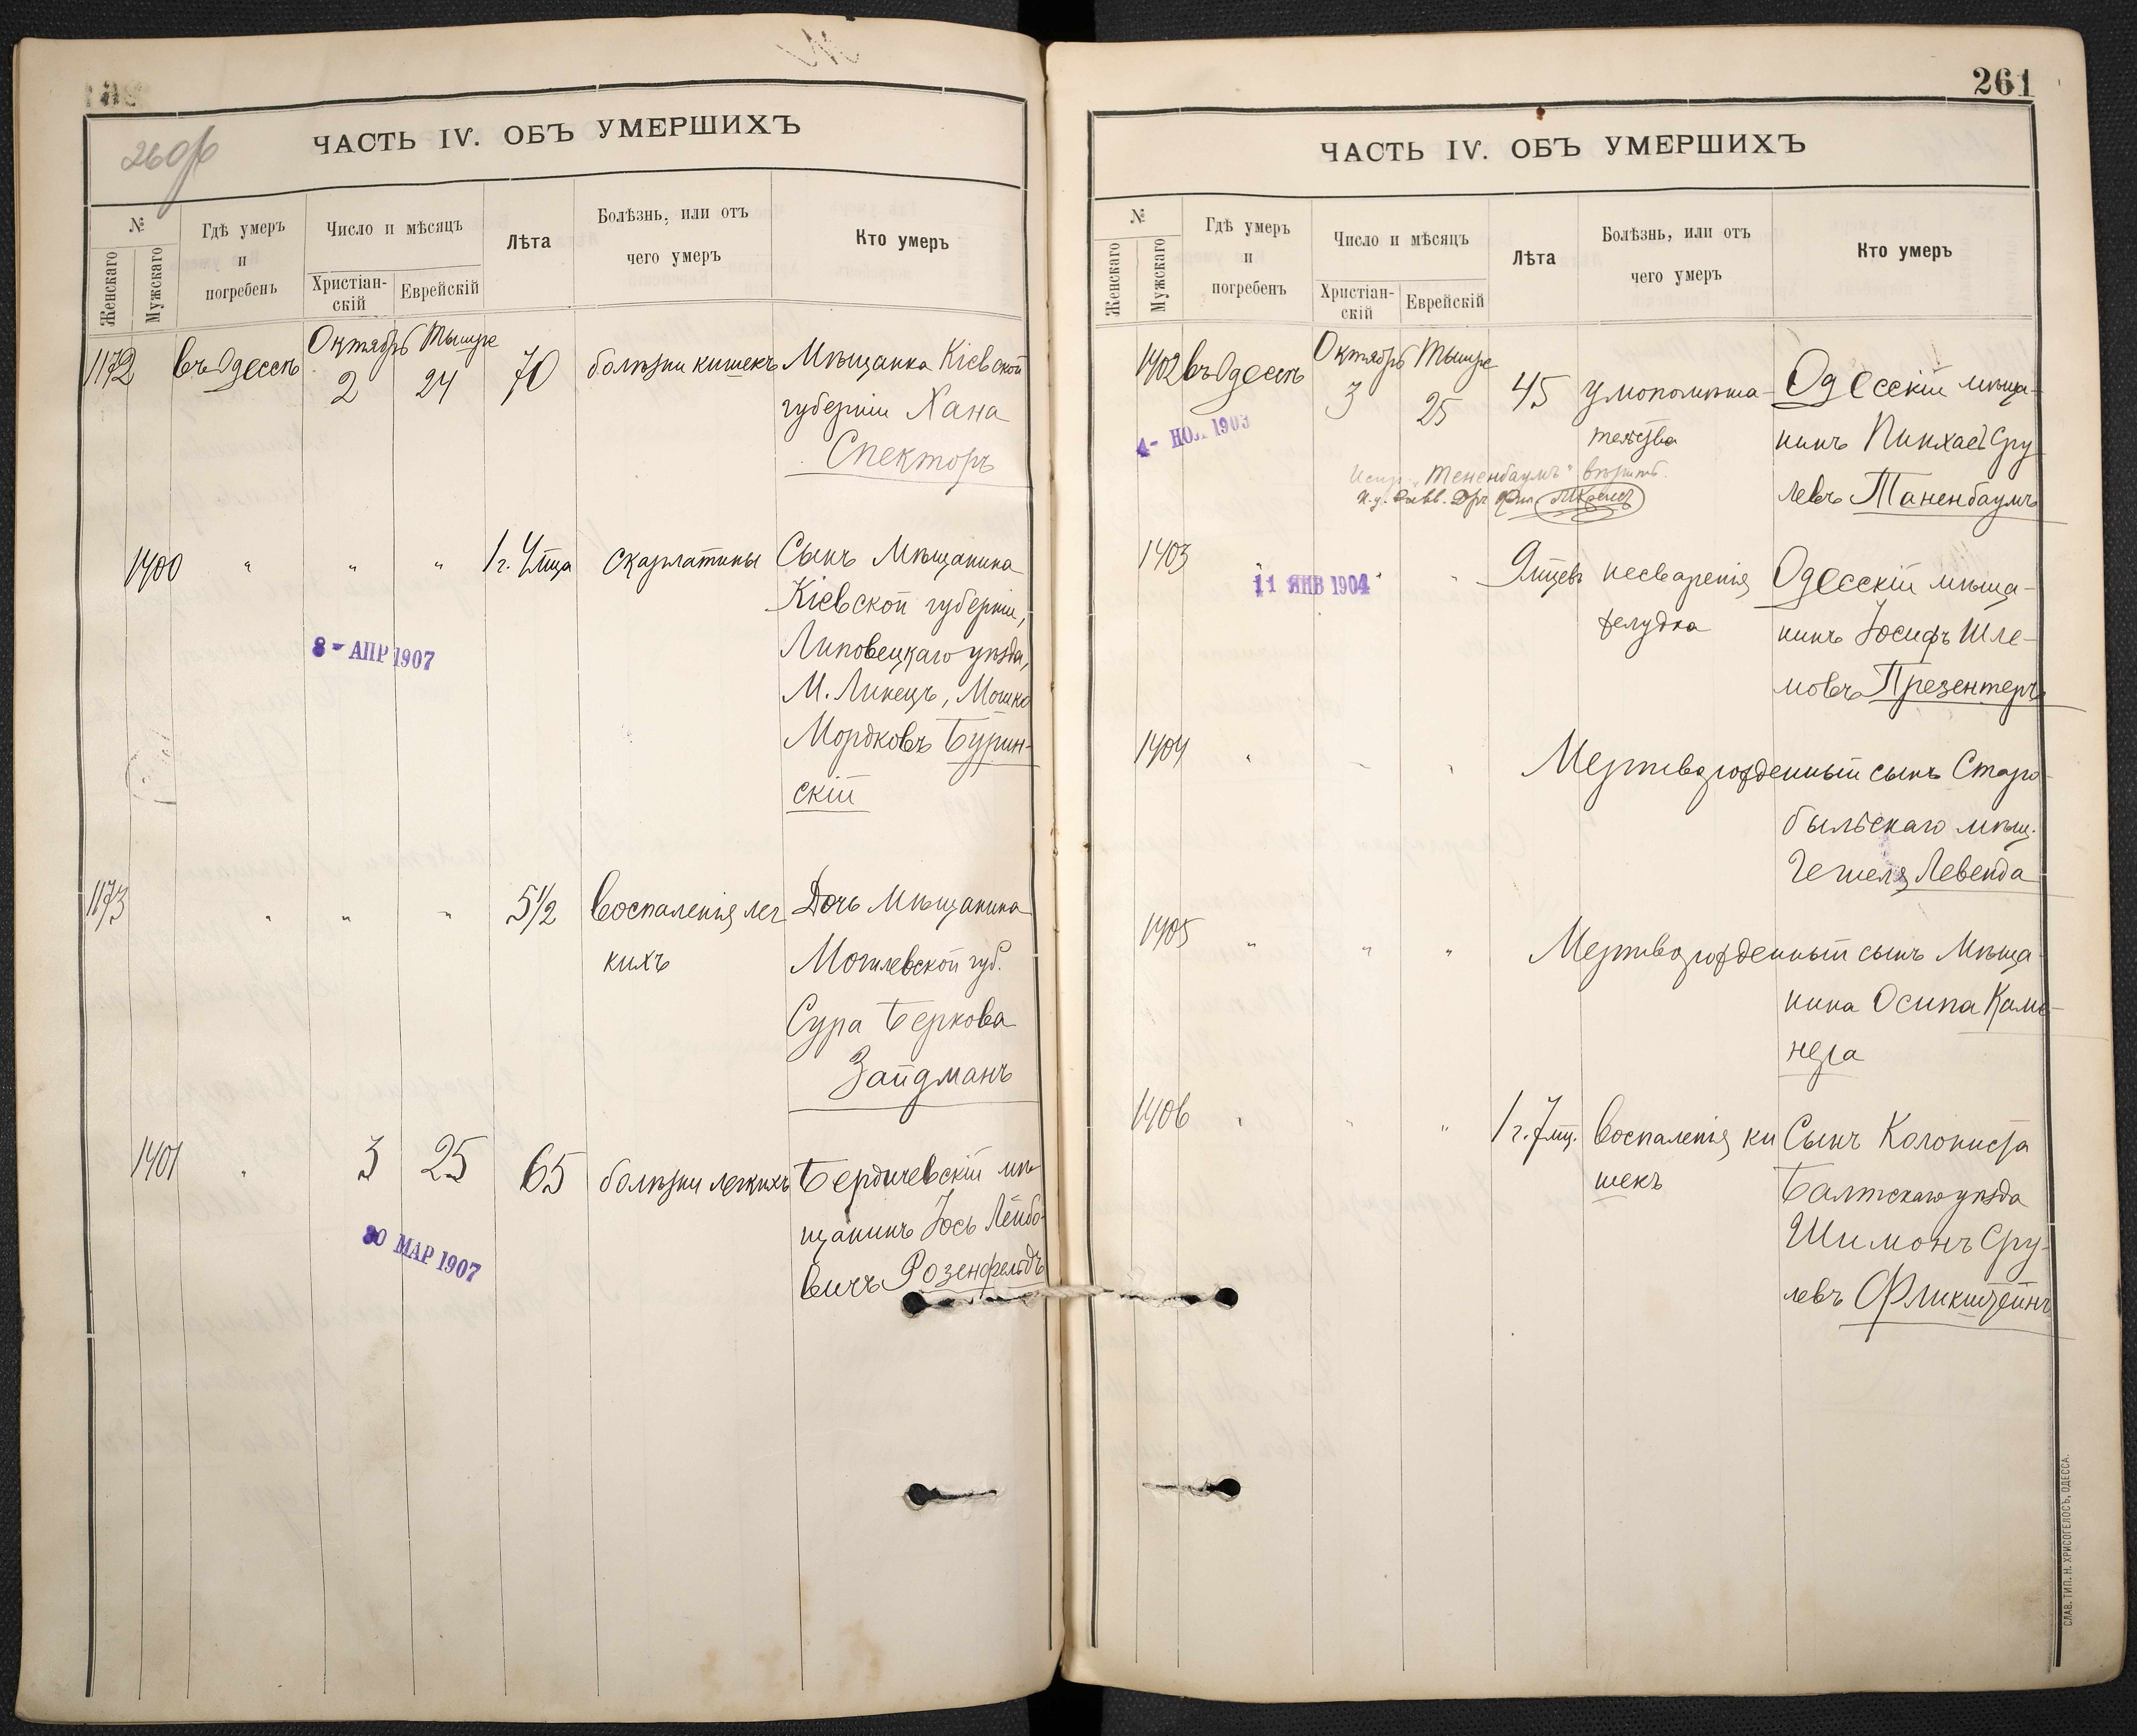 260 об
ЧАСТЬ IV. ОБЪ УМЕРШИХЪ
№
Женскаго
Мужскаго
Гдѣ умеръ
и
погребенъ
Число и мѣсяцъ
Христіан-
скій
Еврейскій
Лѣта
Болѣзнь, или отъ
чего умеръ
Кто умеръ
1172 въ Одессѣ Октябрь 2 Тышре 24 70 болѣзни кишекъ Мѣщанка Кіевской
губерніи Хана
Спекторъ
1400 " " " 1 г. 4 мца скарлатины Сынъ Мѣщанина
Кіевской губерніи,
Липовецкаго уѣзда,
М. Линецъ, Мошко
Мордковъ Бурин-
скій
8 - АПР 1907
1173 " " " 5 1/2 воспаленія лег
кихъ
Дочь Мѣщанина
Могилевской губ.
Сура Беркова
Зайдманъ
1401 " 3 25 65 болѣзни легкихъ Бердичевскій мѣ-
щанинъ Іось Лейбо-
вичъ Розенфельдъ
30 МАР 1907
261
ЧАСТЬ IV. ОБЪ УМЕРШИХЪ
№
Женскаго
Мужскаго
Гдѣ умеръ
и
погребенъ
Число и мѣсяцъ
Христіан-
скій
Еврейскій
Лѣта
Болѣзнь, или отъ
чего умеръ
Кто умеръ
1402 въ Одессѣ Октябрь 3 Тышре 25 45 умопомѣша-
тельства
Одесскій мѣща-
нинъ Пинхасъ Сру
левъ Таненбаумъ
4 - НОЯ 1903
Испр. „Тененбаумъ" вѣрить.
1403 " " " 9 мцевъ несваренія
желудка
Одесскій мѣща-
нинъ Іосифъ Шле-
мовъ Презентеръ
11 ЯНВ 1904
1404 " " " Мертворожденный сынъ Старо-
быльскаго мѣщ.
Гешеля Левенда
1405 " " " Мертворожденный сынъ Мѣща-
нина Осипа Каме-
нера
1406 " " " 1 г. 7 мц. воспаленія ки
шекъ
Сынъ Колониста
Балтскаго уѣзда
Шимонъ Сру-
левъ Фликштейнъ
СЛАВ. ТИП. Н. ХРИСОГЕЛОСЪ, ОДЕССА.